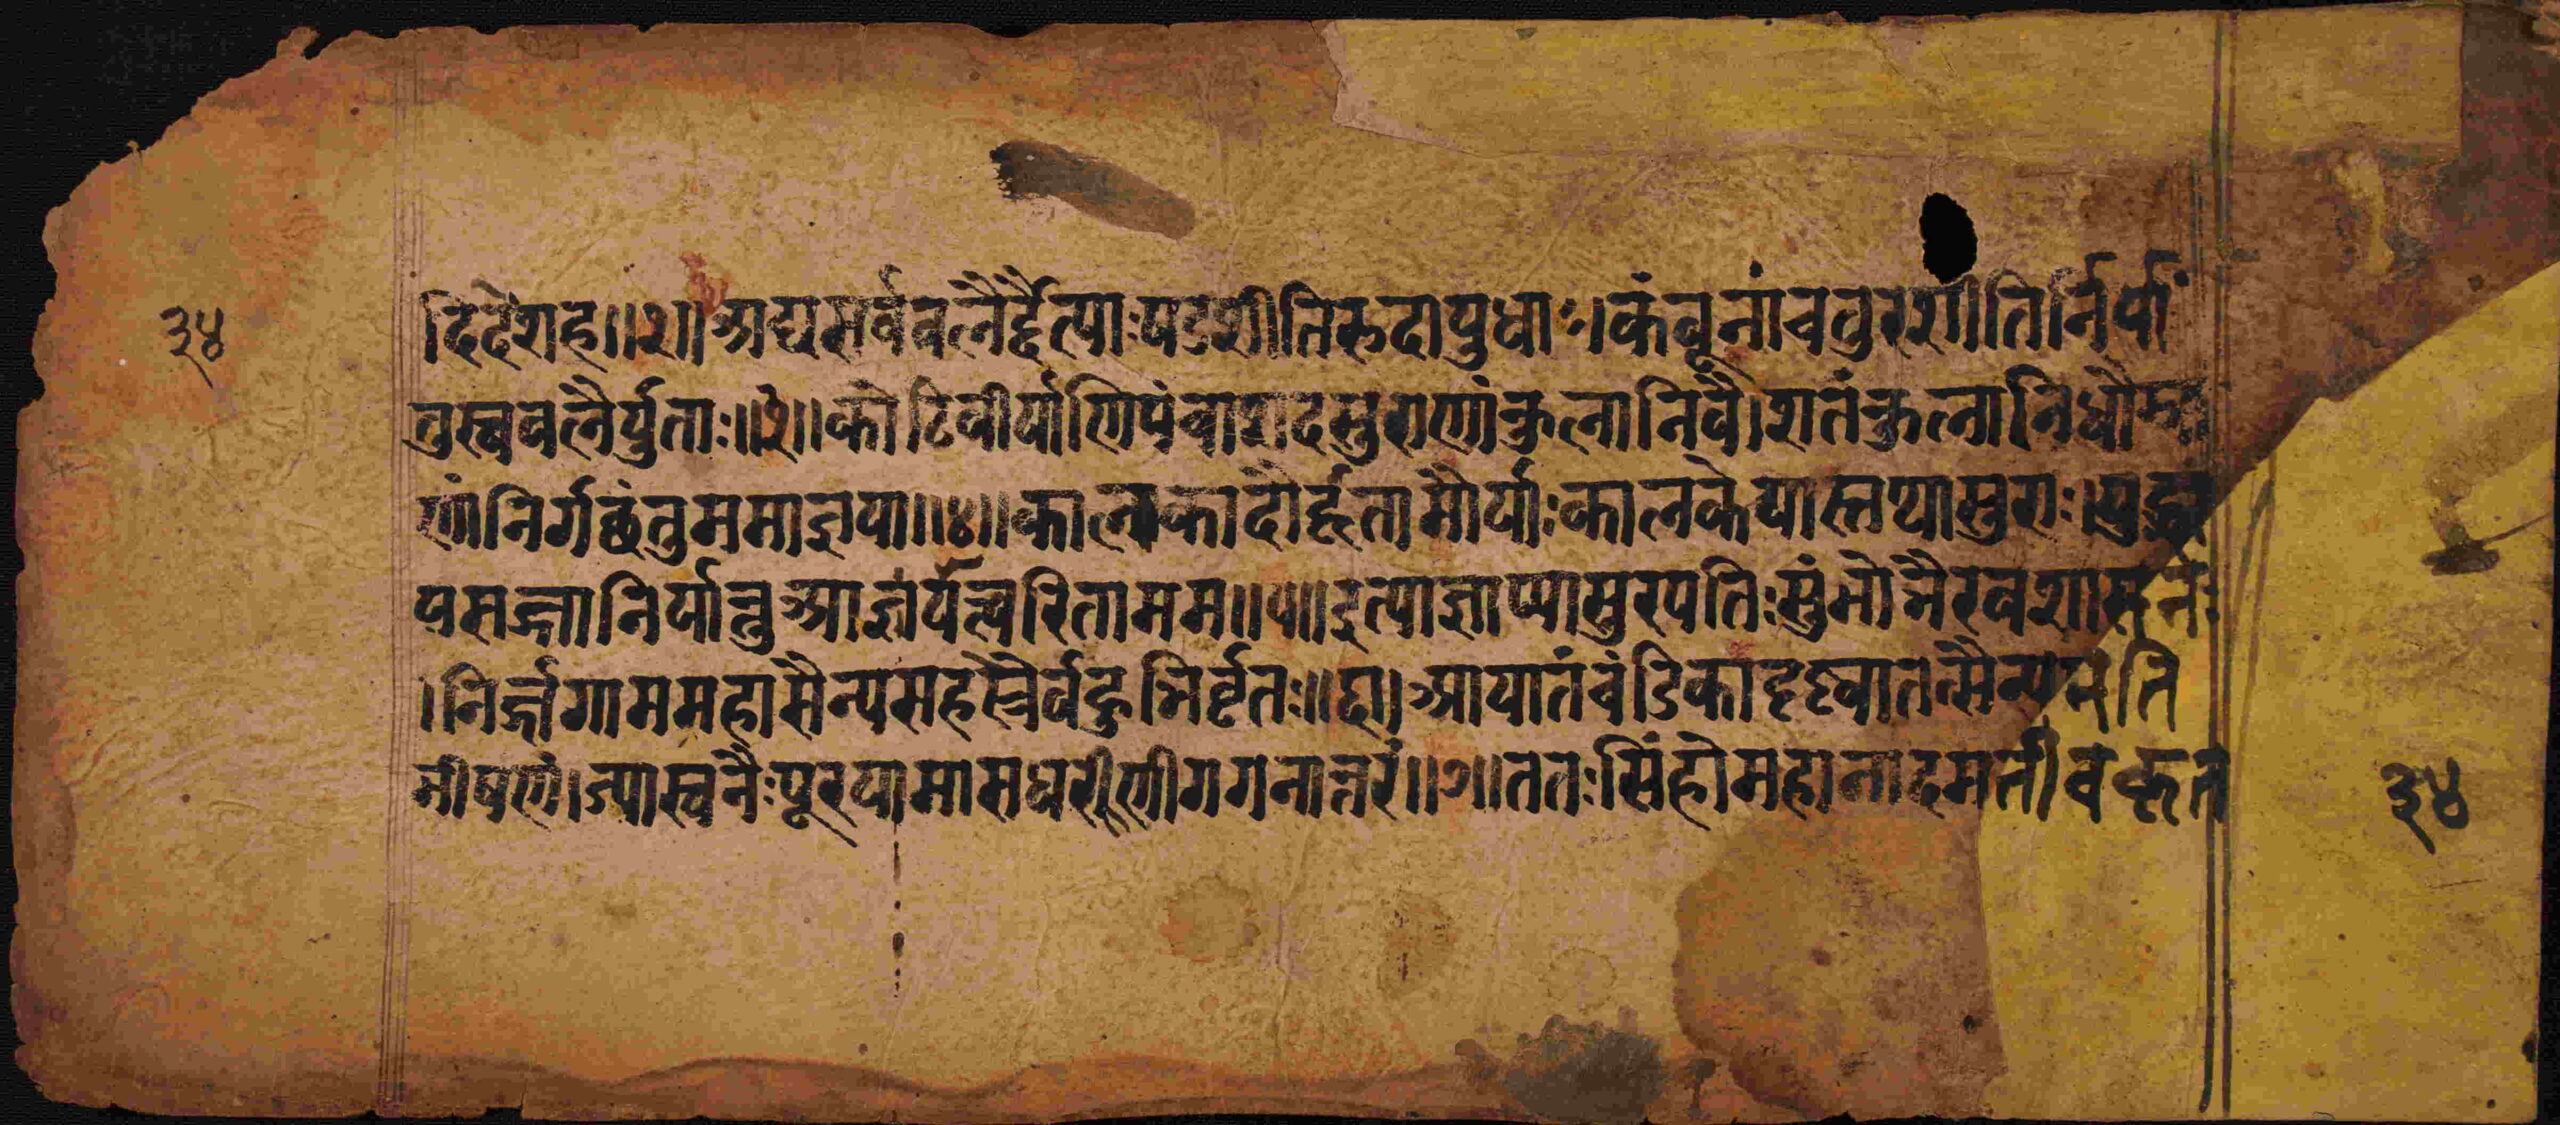 ३४
दिदेशह॥३॥अद्यसर्वबलैर्द्दैत्याःषडशीतिरुदायुधाः।कंबूनांचतुरशीतिर्निर्यां
तुस्वबलैर्युताः॥३॥कोटिवीर्याणिपंचाशदसुराणांकुलानिवै।शतंकुलानिधौम्रा
णांनिर्गछंतुममाज्ञया॥४॥कालकादौर्हृतामौर्याःकालकेयास्तथासुराः।युद्धा
यसज्जानिर्यान्तुआज्ञयत्वरिताममम॥५॥इत्याज्ञाप्यासुरपतिःसुंभोभैरवशासनः
।निर्ज्जगाममहासैन्यसहस्रैर्वहुभिर्वृतः॥६॥आयातंचंडिकादृष्ट्वातत्सैन्यमति
भीषणं।ज्यास्वनैःपूरयामासधरणीगगनान्तरं॥७॥ततःसिंहोमहानादमतीवकृत
३४